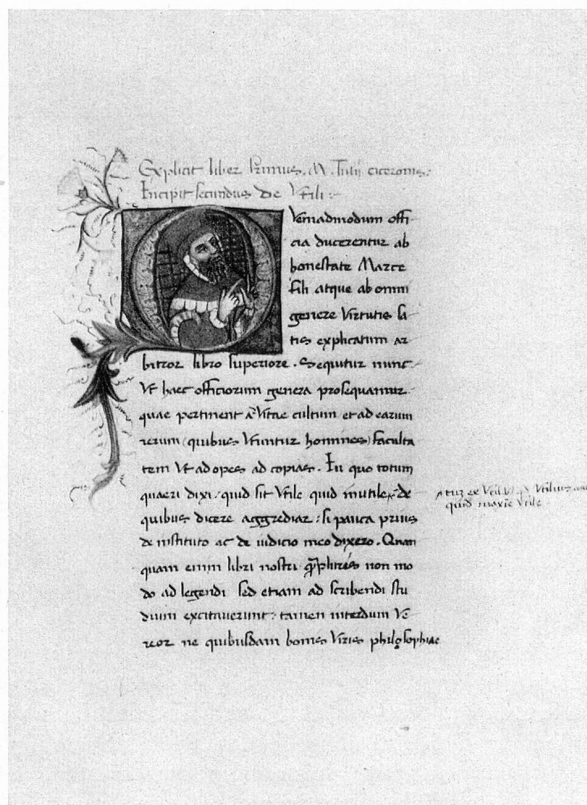 Explicit liber Primus. M. Tulii ciceronis.
Incipit secundus De Vtili
Q Vemadmodum offi
cia ducerentur ab
honestate Marce
fili atque ab omni
genere Virtutis sa
tis explicatum ar
bitror libro superiore. Sequitur nunc
Vt haec officiorum genera prosequamur
quae pertinent ad Vitae cultum et ad earum
rerum quibus Vtuntur homines faculta
tem Vt ad opes ad copias. In quo totum
quaeri dixi quid sit Vtile quid inutile de
quibus dicere aggrediar: si pauca prius
de instituto ac de iudicio meo dixero. Quan
quam enim libri nostri non mo
do ad legendi sed etiam ad scribendi stu
dium excitaverunt: tamen interdum Ve
reor ne quibusdam bonis Viris philosophiae
quid maxie Vtile